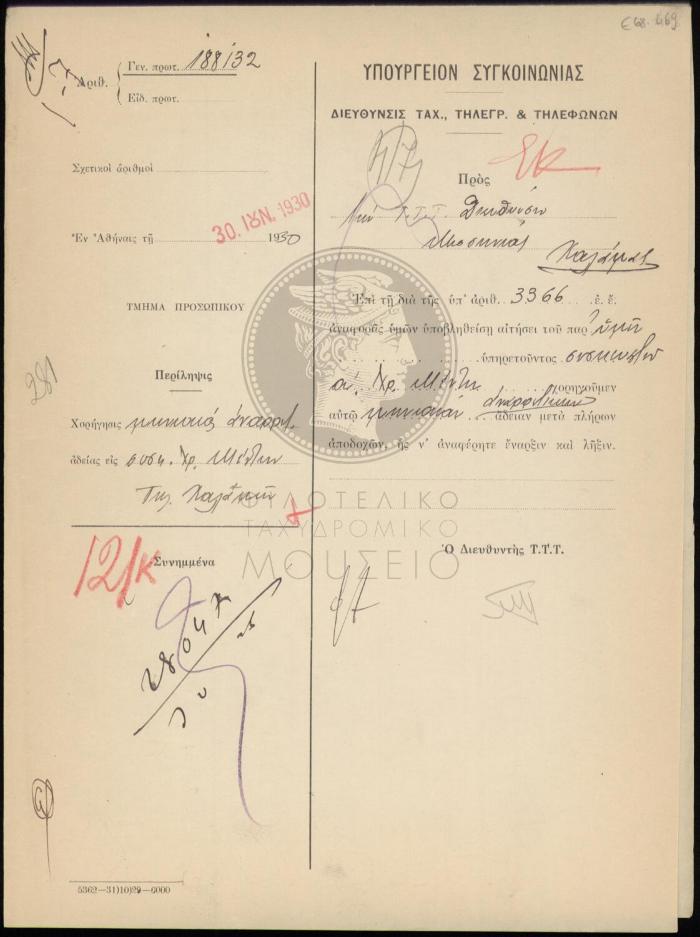 Ε68.469
Ἀριθ.
Γεν. πρωτ. 188132
Εἰδ. πρωτ.
Σχετικοὶ ἀριθμοὶ
30 ΙΟΥΝ. 1930
Ἐν Ἀθήναις τῇ 1930
ΤΜΗΜΑ ΠΡΟΣΩΠΙΚΟΥ
Περίληψις
Χορήγησις μηνιαίας ἀναρρ.
ἀδείας εἰς συσκ. Χρ.
Τηλ.
Συνημμένα
12/κ
28047
5362—31)10)29—6000
ΥΠΟΥΡΓΕΙΟΝ ΣΥΓΚΟΙΝΩΝΙΑΣ
ΔΙΕΥΘΥΝΣΙΣ ΤΑΧ., ΤΗΛΕΓΡ. & ΤΗΛΕΦΩΝΩΝ
Πρὸς
τὴν Τ.Τ.Τ. Διεύθυνσιν
Μεσσηνίας
Καλάμας
Ἐπὶ τῇ διὰ τῆς ὑπ' ἀριθ. 3366 ἐ. ἔ.
ἀναφορᾶς ὑμῶν ὑποβληθείσῃ αἰτήσει τοῦ παρ' ὑμῖν
ὑπηρετοῦντος συσκευαστοῦ
Χρ. χορηγοῦμεν
αὐτῷ μηνιαίαν ἀναρρωτικὴν ἄδειαν μετὰ πλήρων
ἀποδοχῶν, ἧς ν' ἀναφέρητε ἔναρξιν καὶ λῆξιν.
Ὁ Διευθυντὴς Τ.Τ.Τ.
ΦΙΛΟΤΕΛΙΚΟ
ΤΑΧΥΔΡΟΜΙΚΟ
ΜΟΥΣΕΙΟ